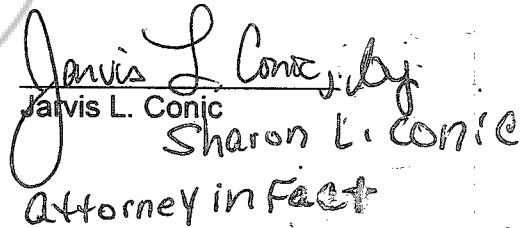 Jarvis L. Conic, by
Jarvis L. Conic
Sharon L. Conic
Attorney in Fact